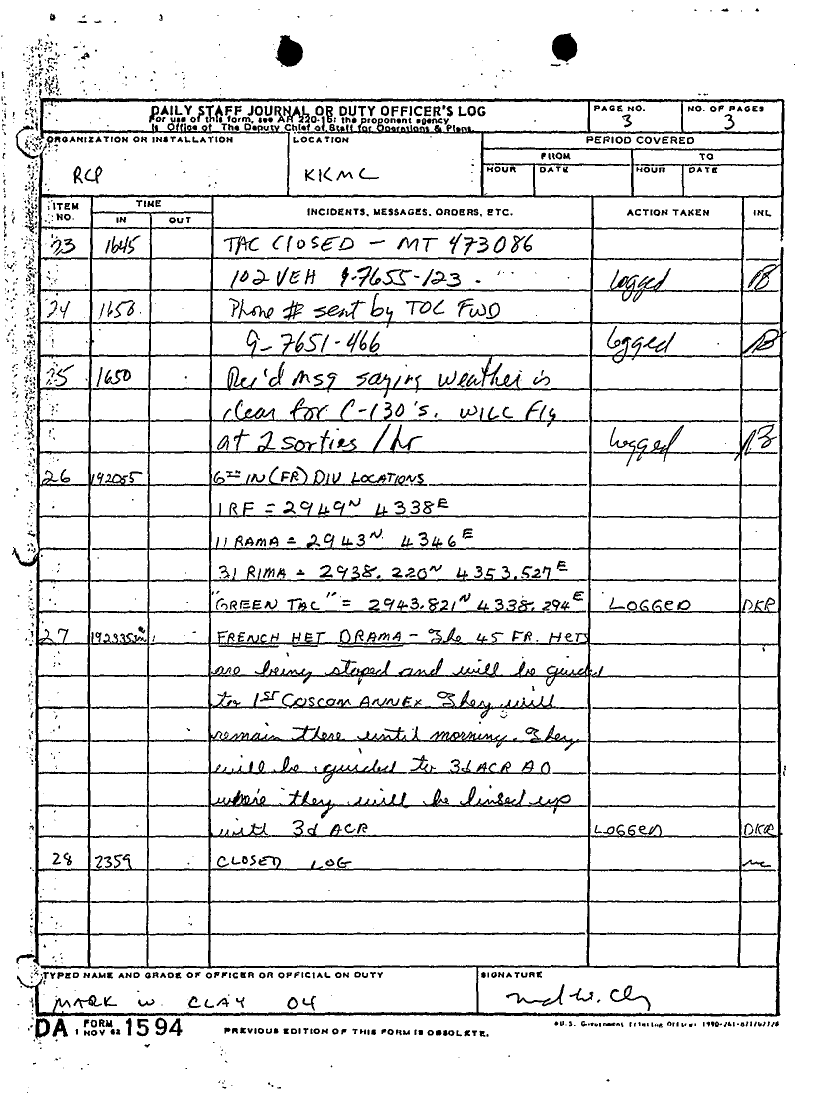 DAILY STAFF JOURNAL OR DUTY OFFICER'S LOG
For use of this form, see AR 220-15; the proponent agency
is Office of The Deputy Chief of Staff for Operations & Plans.
PAGE NO.
3
NO. OF PAGES
3
ORGANIZATION OR INSTALLATION
RCP
LOCATION
KKMC
PERIOD COVERED
FROM
TO
HOUR DATE HOUR DATE
ITEM NO.
TIME
IN OUT
INCIDENTS, MESSAGES, ORDERS, ETC.
ACTION TAKEN
INL
23 1645 TAC CLOSED – MT 473086
102 VEH 9-7655-123. logged
24 Phone # sent by TOC FWD
9-7651-466 logged
25 1650 Rec'd msg saying weather is
clear for C-130's. WILL Fly
at 2 sorties/hr logged
26 192055 6TH IN (FR) DIV LOCATIONS
1RF = 2949N 4338E
11 RAMA = 2943N 4346E
31 RIMA = 2938.220N 4353.527E
"GREEN TAC" = 2943.821N 4338.294E LOGGED DKR
27 FRENCH HET DRAMA – The 45 FR. HETS
are being stoped and will be guided
to 1ST COSCOM ANNEX. They will
remain there until morning. They
will be guided to 3d ACR AO
where they will be linked up
with 3d ACR LOGGED DKR
28 2359 CLOSED LOG
TYPED NAME AND GRADE OF OFFICER OR OFFICIAL ON DUTY
MARK W. CLAY O4
SIGNATURE
DA FORM 1 NOV 62 1594
PREVIOUS EDITION OF THIS FORM IS OBSOLETE.
U.S. Government Printing Office: